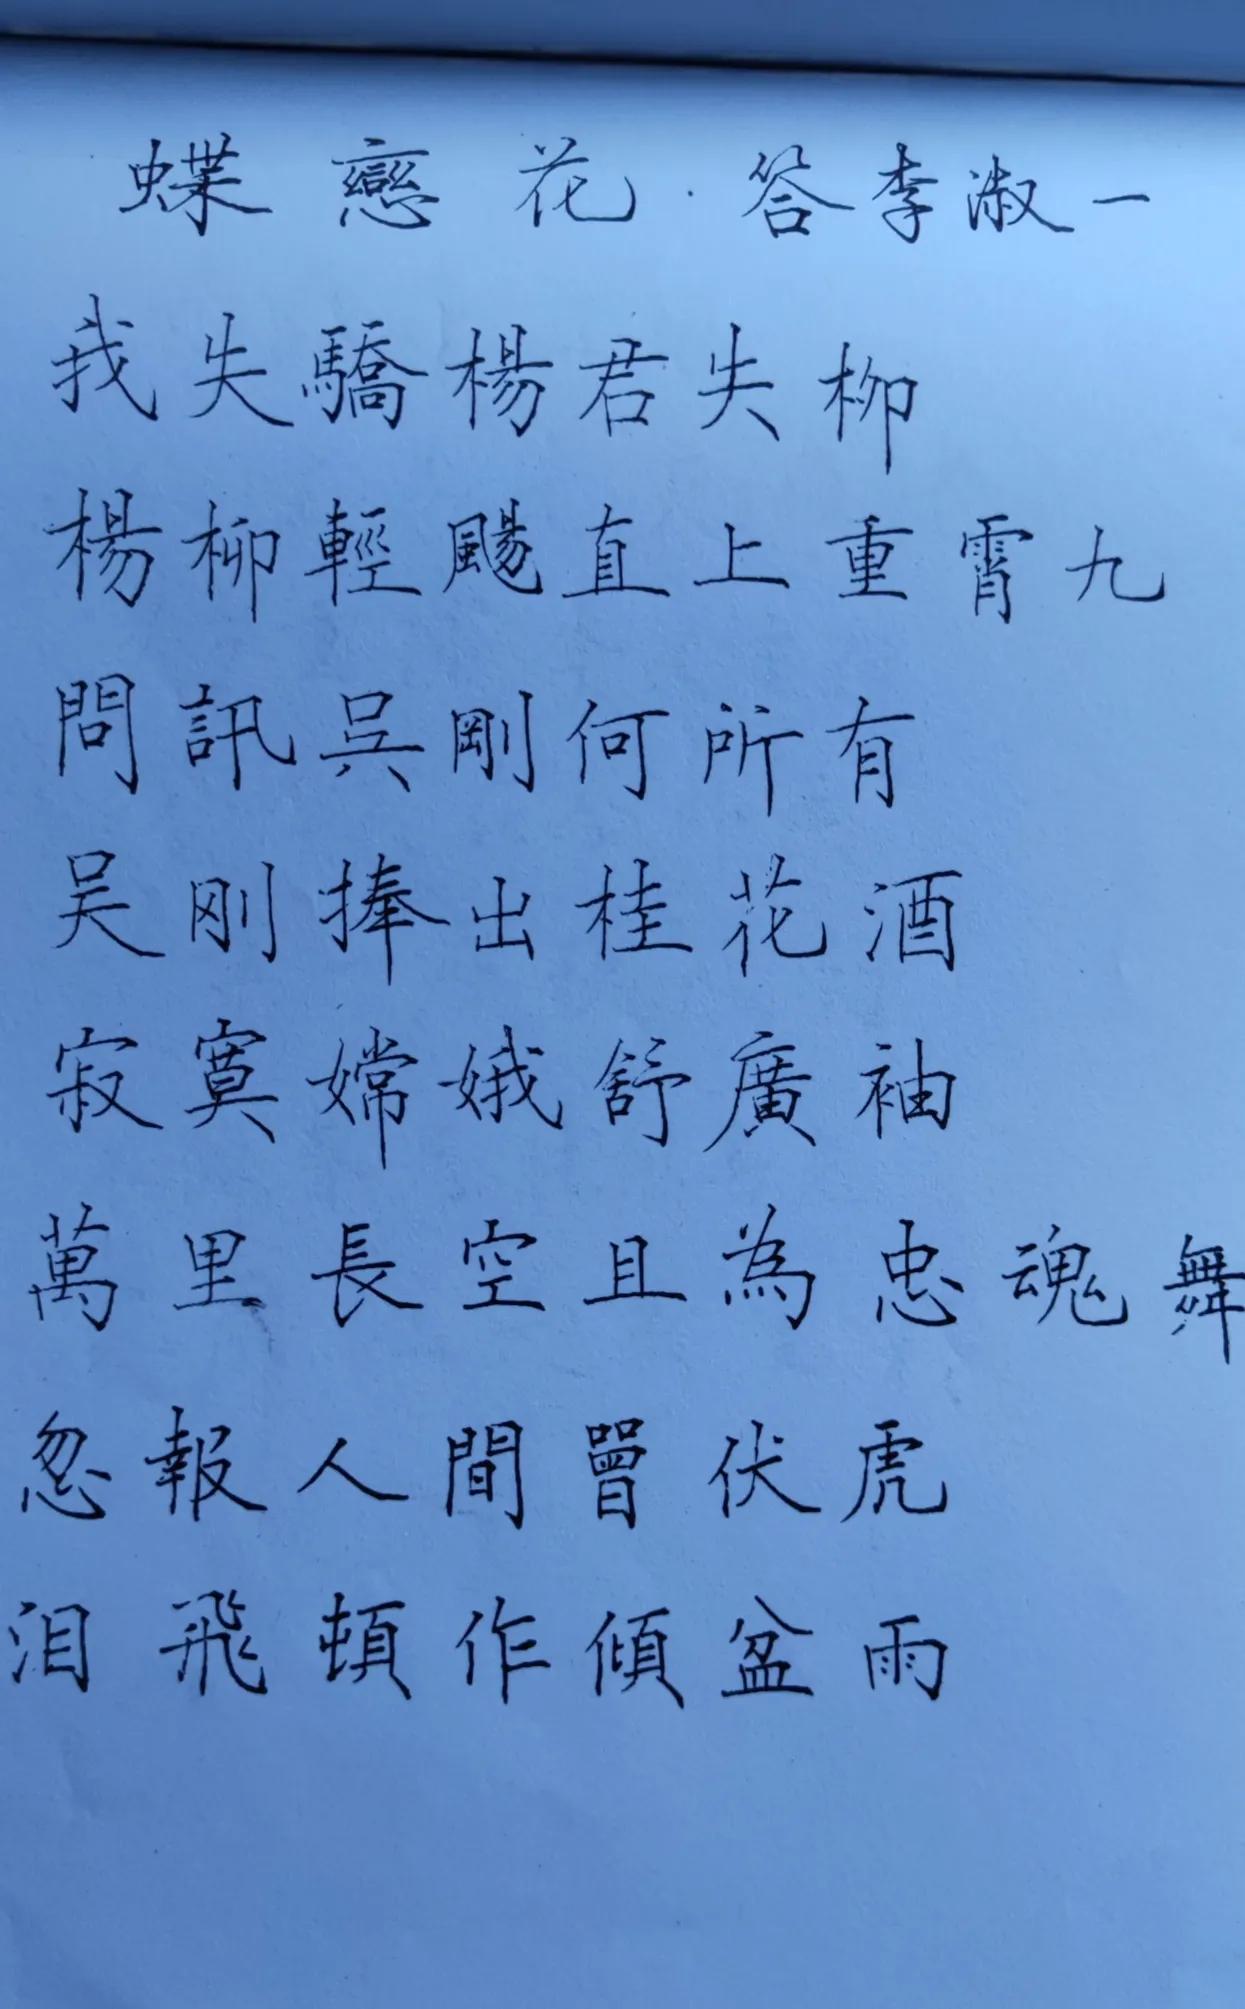 蝶戀花·答李淑一
我失驕楊君失柳
楊柳輕颺直上重霄九
問訊吳剛何所有
吴刚捧出桂花酒
寂寞嫦娥舒廣袖
萬里長空且為忠魂舞
忽報人間曾伏虎
泪飛頓作傾盆雨